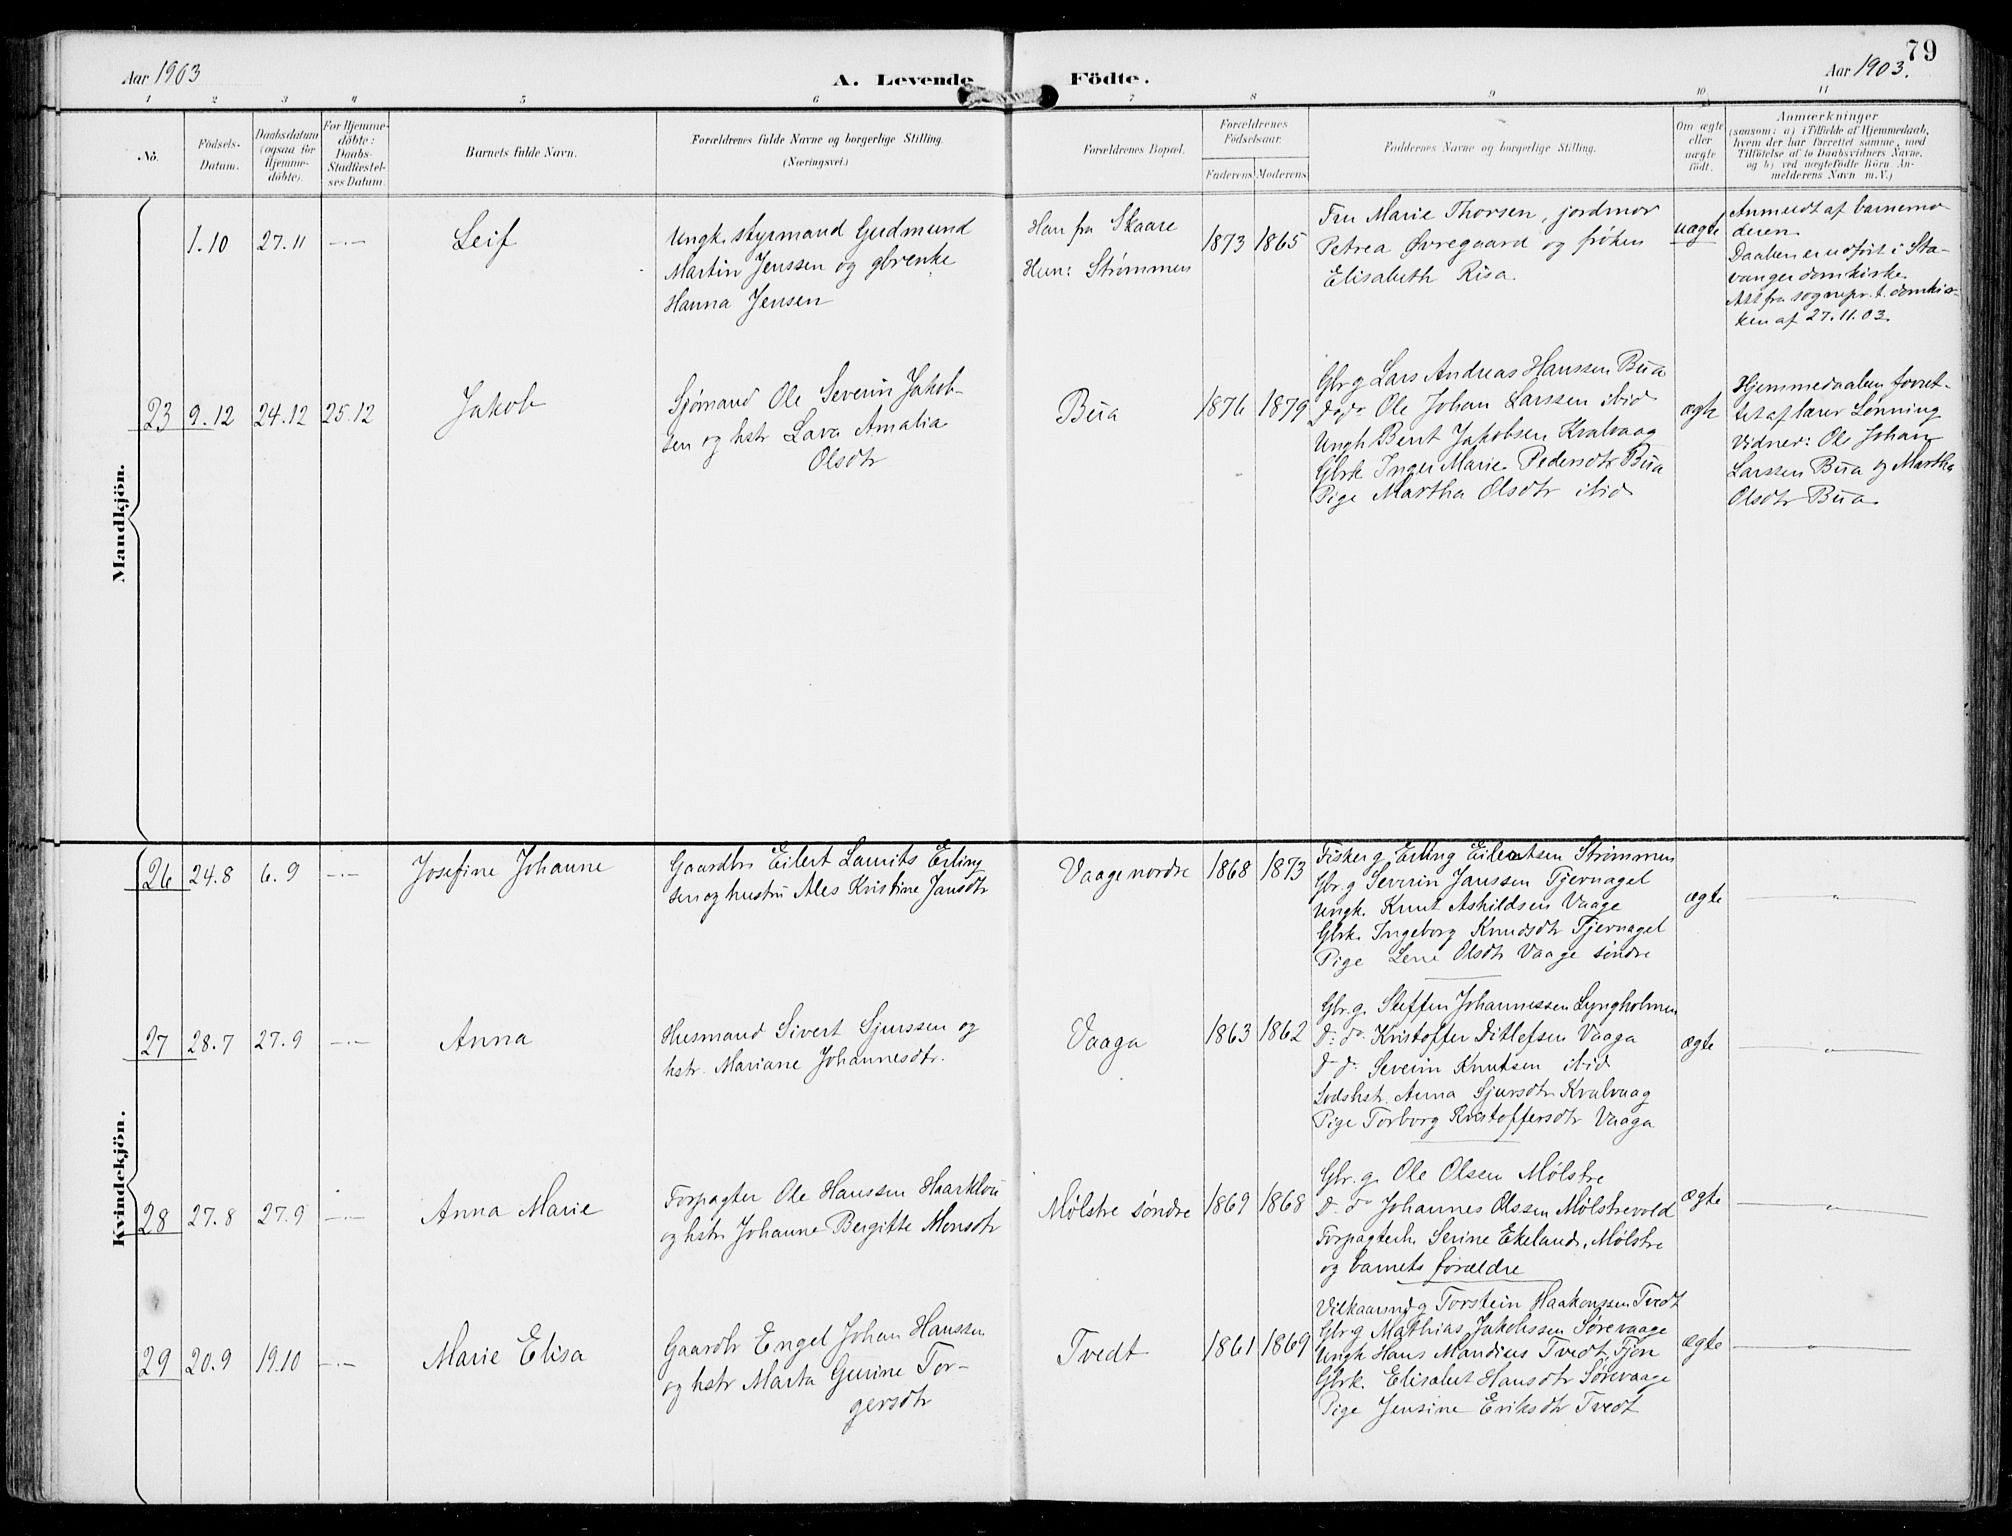 79
Aar 1903
A. Levende Födte.
Aar 1903.
1 2 3 4 5 6 7 8 9 10 11
No.
Födsels-
Datum.
Daabsdatum
(ogsaa for
Hjemme-
döbte).
For Hjemme-
döbte:
Daabs-
Stadfæstel-
ses Datum.
Barnets fulde Navn.
Forældrenes fulde Navne og borgerlige Stilling.
(Næringsvei.)
Forældrenes Bopæl.
Forældrenes
Födselsaar.
Faderens Moderens
Faddernes Navne og borgerlige Stilling.
Om ægte
eller
uægte
födt.
Anmærkninger
(saasom: a) i Tilfælde af Hjemmedaab,
hvem der har forrettet samme, med
Tilföielse af to Daabsvidners Navne,
og b) ved uægtefödte Börn An-
melderens Navn m. V.)
Mandkjön.
1.10 27.11 -"- Leif
Ungk. styrmand Gudmund
Martin Jenssen og gbrenke
Hanna Jensen
Han fra Skaare
Hun: Strømmen
1873 1865
Fru Marie Thorsen, jordmor
Petrea Øvregaard og frøken
Elisabeth Risa.
uægte
Anmeldt af barnemo
deren.
Daaben er udført i Sta-
vanger domkirke.
Att fra sognepr. t. domkir-
ken af 27.11.03.
23 9.12 24.12 25.12 Jakob
Sjømand Ole Severin Jakob-
sen og hstr Lava Amalia
Olsdtr
Bua
1876 1879
Gbr g Lars Andreas Hanssen Bua
do do Ole Johan Larssen ibid
Ungk Bent Jakobsen Kvalvaag
Gbrk Inger Marie Pedersdtr Bua
Pige Martha Olsdtr ibid
ægte
Hjemmedaaben forret-
tet af lærer Lønning
Vidner: Ole Johan
Larssen Bua og Martha
Olsdtr Bua.
Kvindekjön.
26 24.8 6.9 -"- Josefine Johanne
Gaardbr Eilert Laurits Erling
sen og hustru Ales Kristine Jansdtr
Vaage nordre
1868 1873
Fisker g Erling Eilertsen Strømmen
Gbr. g Severin Janssen Tjernagel
Ungk. Knut Askildsen Vaage
Gbrk. Ingeborg Knudsdtr Tjernagel
Pige Lene Olsdtr Vaage søndre
ægte
"
27 28.7 27.9 -"- Anna
Husmand Sivert Sjurssen og
hstr. Mariane Johannesdtr.
Vaaga
1863 1862
Gbr. g. Steffen Johannessen Lyngholmen
d: do Kristoffer Ditlefsen Vaaga
d d: Severin Knutsen ibid
Lodshstr. Anna Sjursdtr Kvalvaag
Pige Torborg Kristoffersdtr Vaaga
ægte
"
28 27.8 27.9 -"- Anna Marie
Forpagter Ole Hanssen Haarklou
og hstr Johanne Bergitte Monsdtr
Mølstre søndre
1869 1868
Gbr. g. Ole Olsen Mølstre
d. do Johannes Olssen Mølstrevold
Forpagterh. Serine Ekeland, Mølstre
og barnets forældre
ægte
"
29 20.9 19.10 -"- Marie Elisa
Gaardbr Engel Johan Hanssen
og hstr Marta Gurine Tor-
gersdtr
Tvedt
1861 1869
Vilkaarsmd g Torstein Haakonssen Tvedt
Gbr g Mathias Jakobssen Sørevaage
Ungk Hans Mandius Tvedt, Tjøn
Gbrk. Elisabet Hansdtr Sørevaage
Pige Jensine Eriksdtr Tvedt
ægte
"